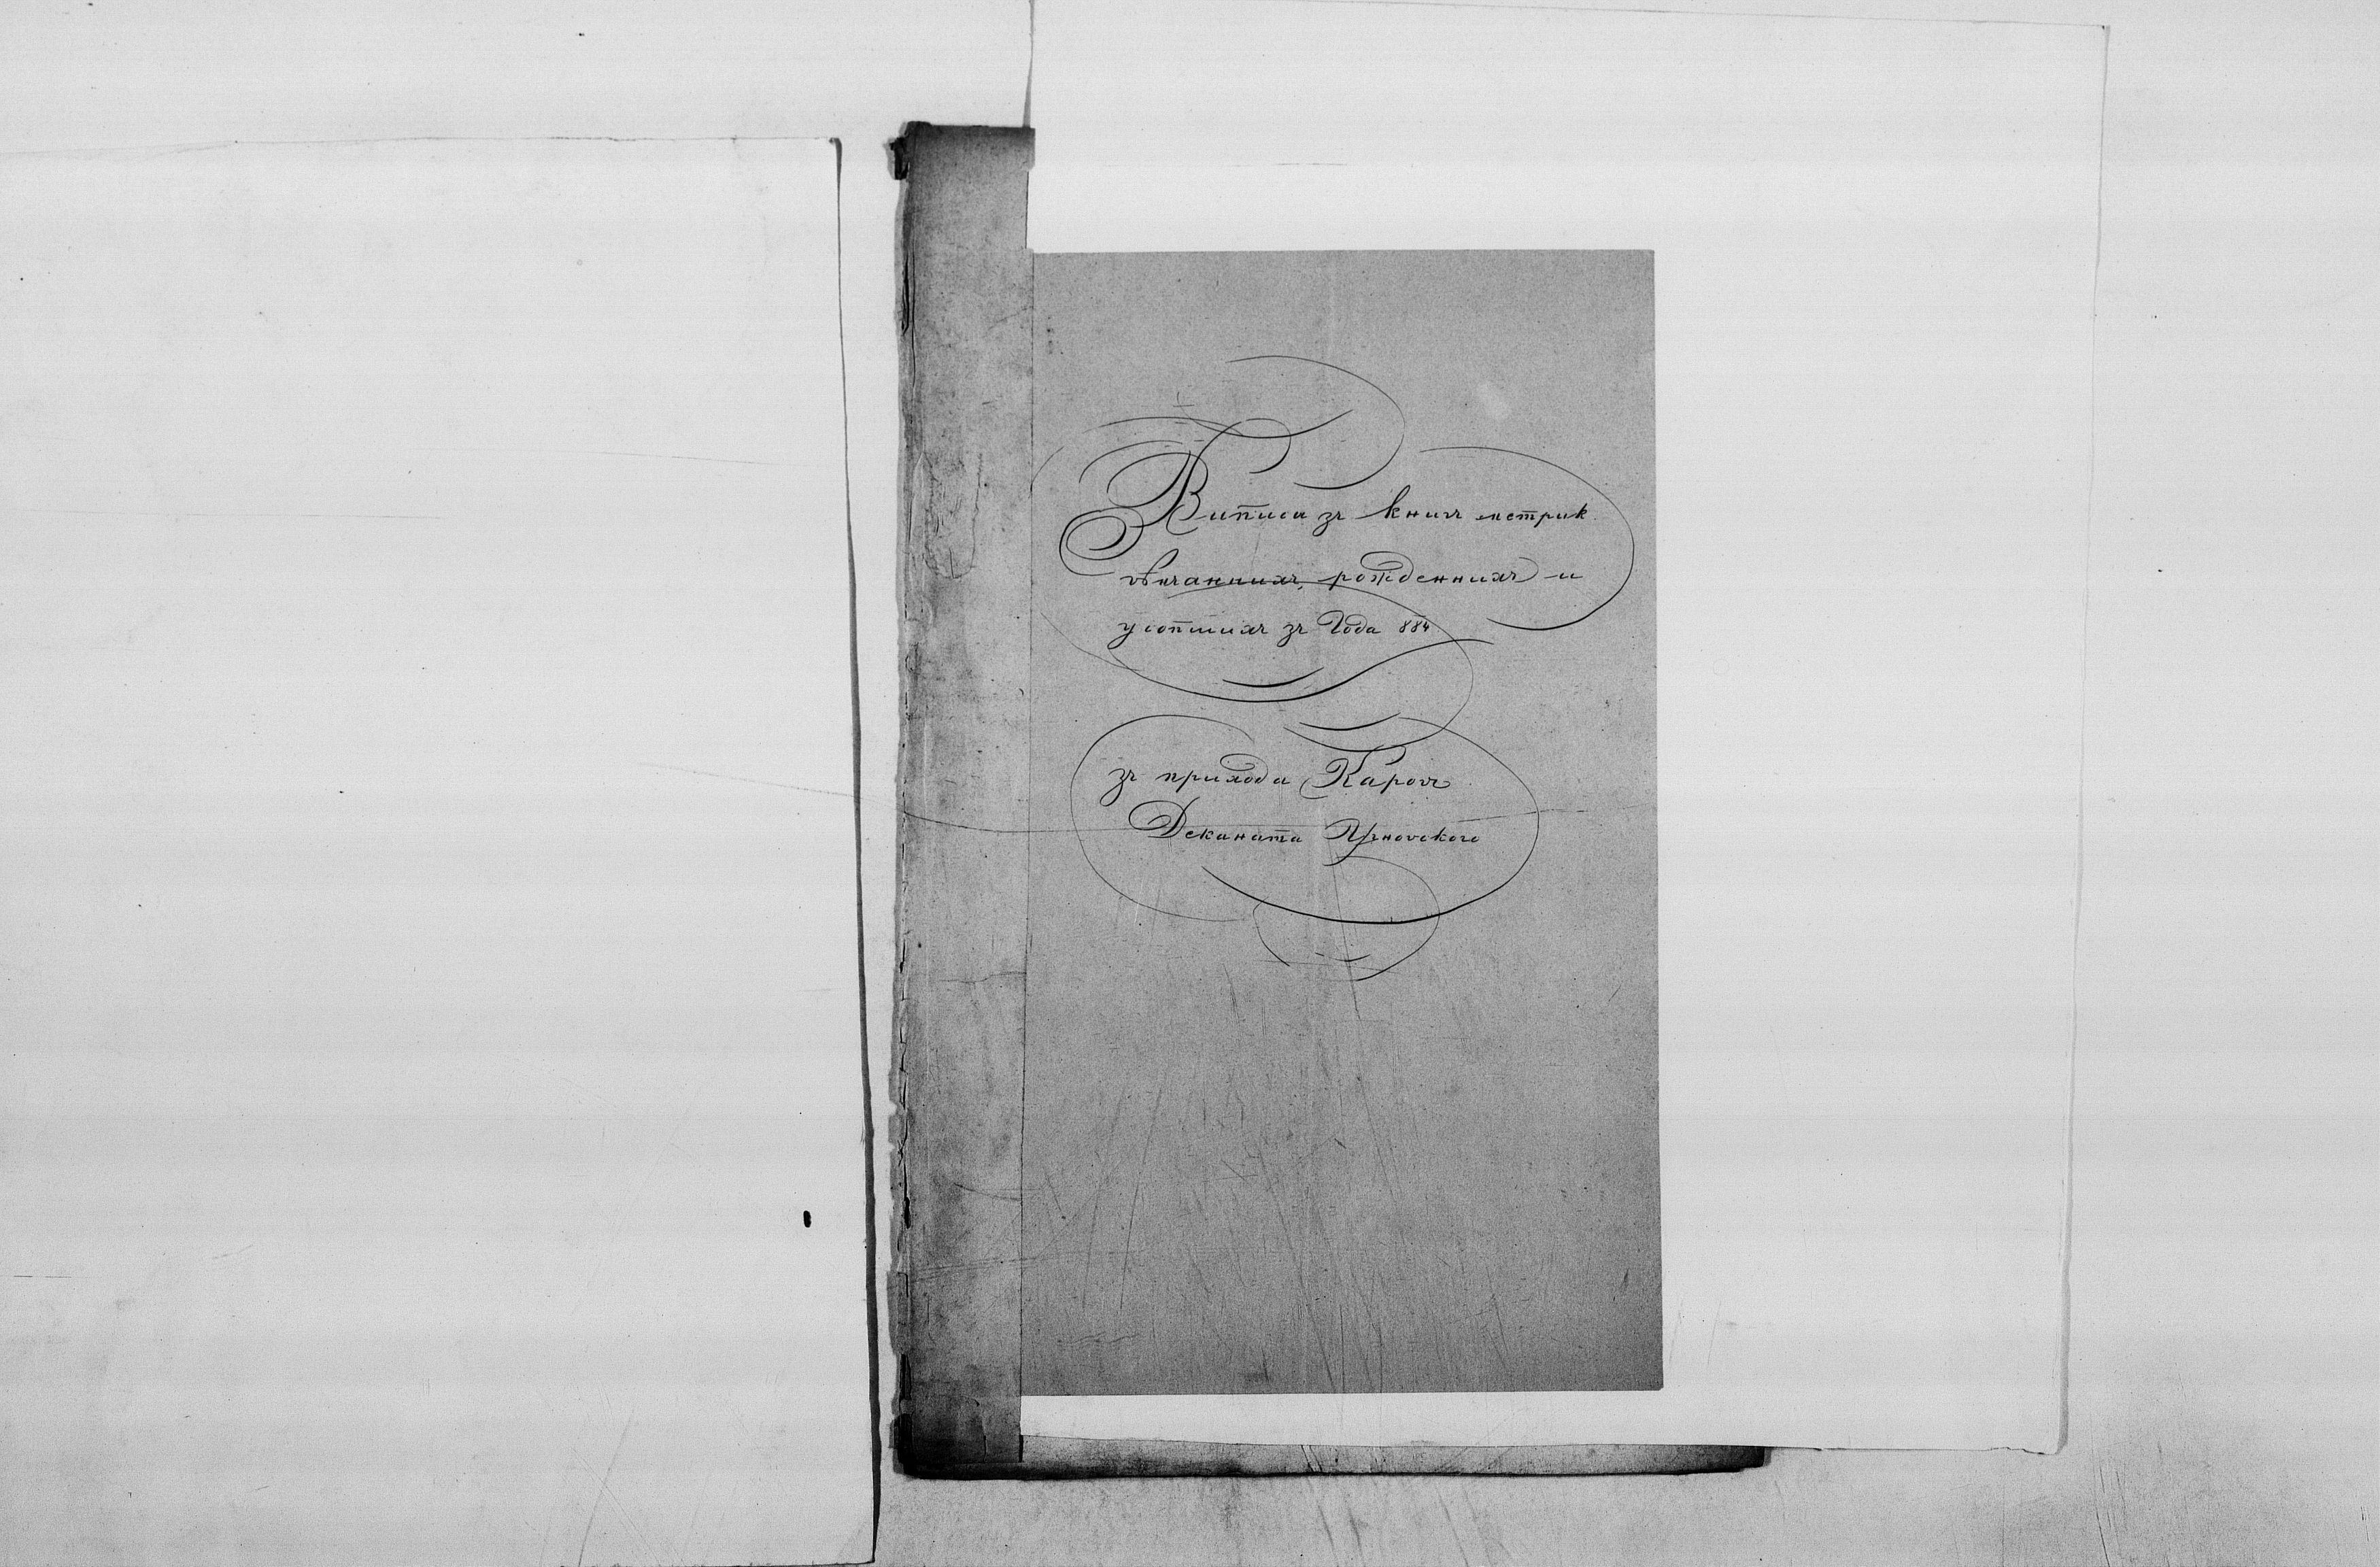 Виписи зъ книгъ метрик.
вѣнчанныхъ, рожденныхъ и
усопшихъ зъ Года 884
зъ прихода Каровъ
Деканата Угновского